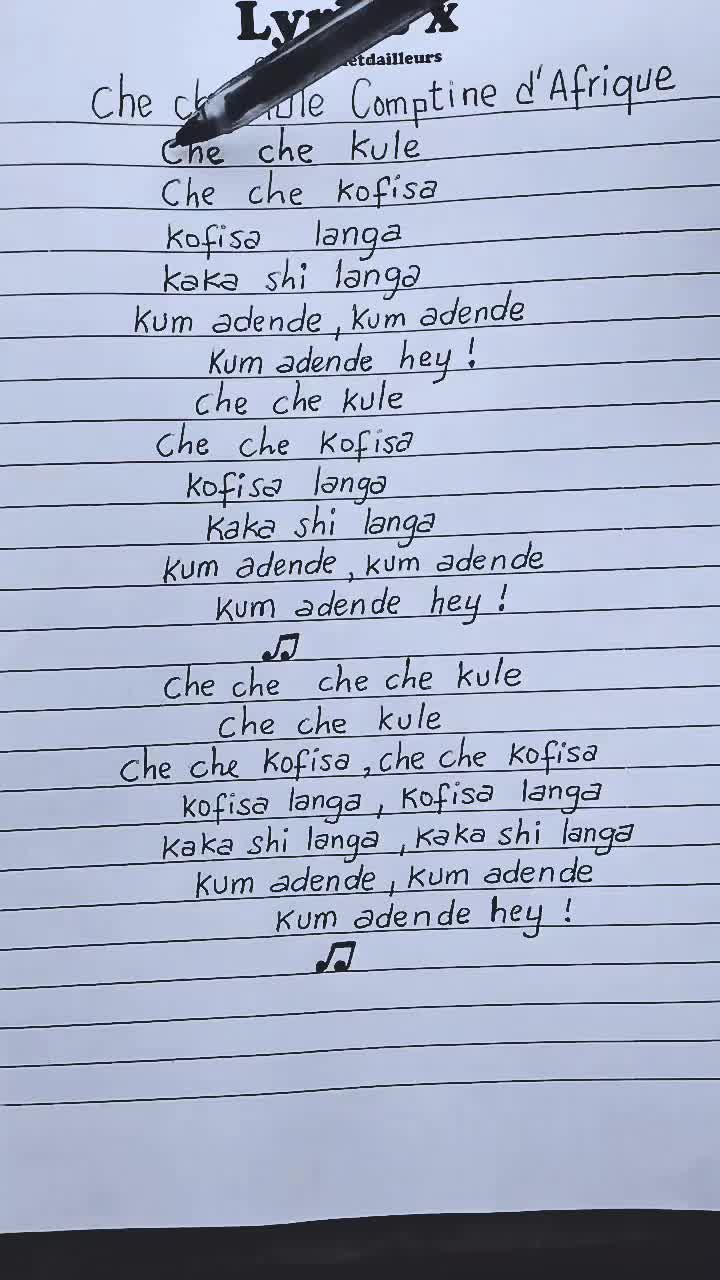 Ly x
etdailleurs
Che ule Comptine d'Afrique
Che che kule
Che che kofisa
kofisa langa
kaka shi langa
Kum adende, kum adende
Kum adende hey !
Che che kule
Che che kofisa
kofisa langa
kaka shi langa
kum adende, kum adende
kum adende hey !
♫
Che che che che kule
Che che kule
Che che kofisa, che che kofisa
kofisa langa, kofisa langa
kaka shi langa, kaka shi langa
kum adende, kum adende
kum adende hey !
♫